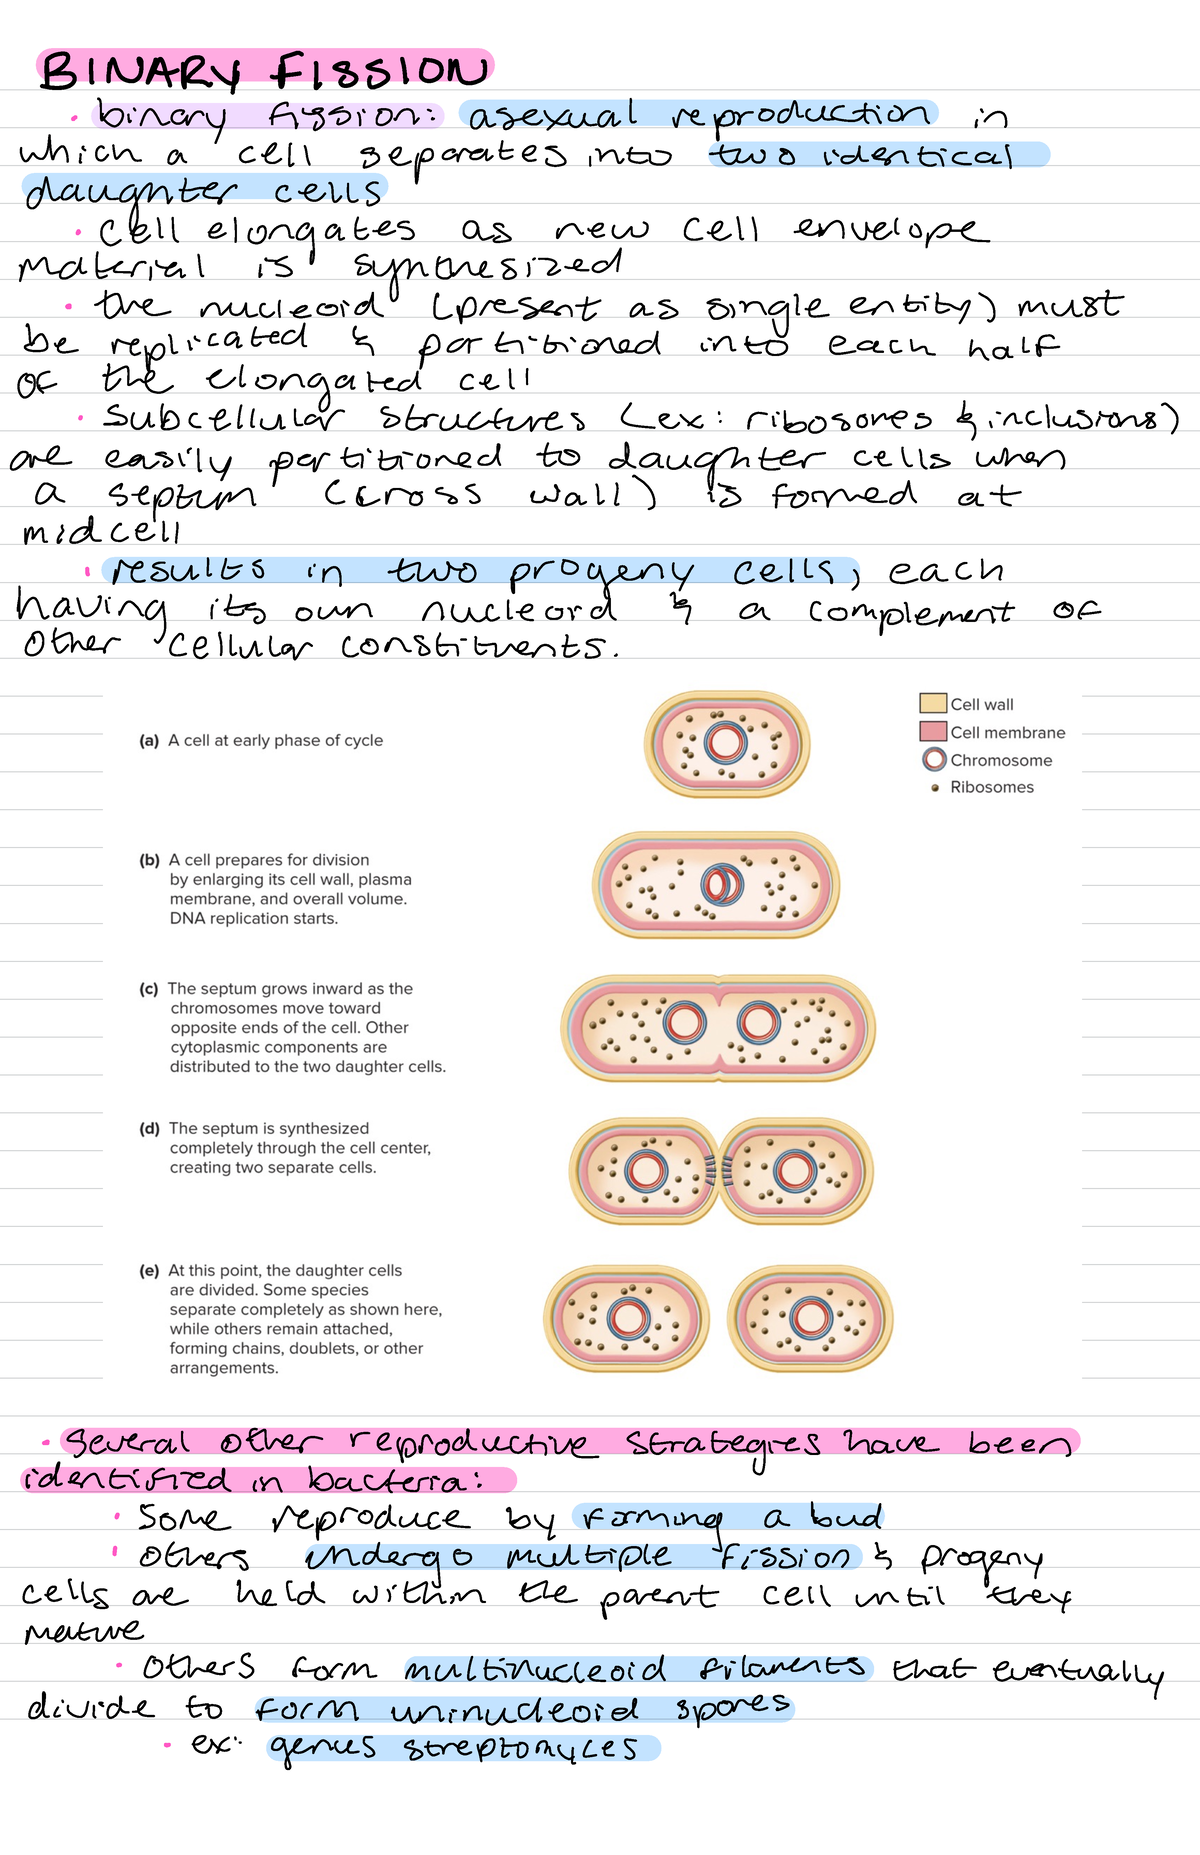 BINARY FISSION
• binary fission: asexual reproduction in
which a cell separates into two identical
daughter cells
• cell elongates as new cell envelope
material is synthesized
• the nucleoid (present as single entity) must
be replicated & partitioned into each half
of the elongated cell
• subcellular structures (ex: ribosomes & inclusions)
are easily partitioned to daughter cells when
a septum (cross wall) is formed at
midcell
• results in two progeny cells, each
having its own nucleoid & a complement of
other cellular constituents.
(a) A cell at early phase of cycle
Cell wall
Cell membrane
Chromosome
Ribosomes
(b) A cell prepares for division
by enlarging its cell wall, plasma
membrane, and overall volume.
DNA replication starts.
(c) The septum grows inward as the
chromosomes move toward
opposite ends of the cell. Other
cytoplasmic components are
distributed to the two daughter cells.
(d) The septum is synthesized
completely through the cell center,
creating two separate cells.
(e) At this point, the daughter cells
are divided. Some species
separate completely as shown here,
while others remain attached,
forming chains, doublets, or other
arrangements.
• Several other reproductive strategies have been
identified in bacteria:
• Some reproduce by forming a bud
• Others undergo multiple fission & progeny
cells are held within the parent cell until they
mature
• Others form multinucleoid filaments that eventually
divide to form uninucleoid spores
• ex: genus streptomyces